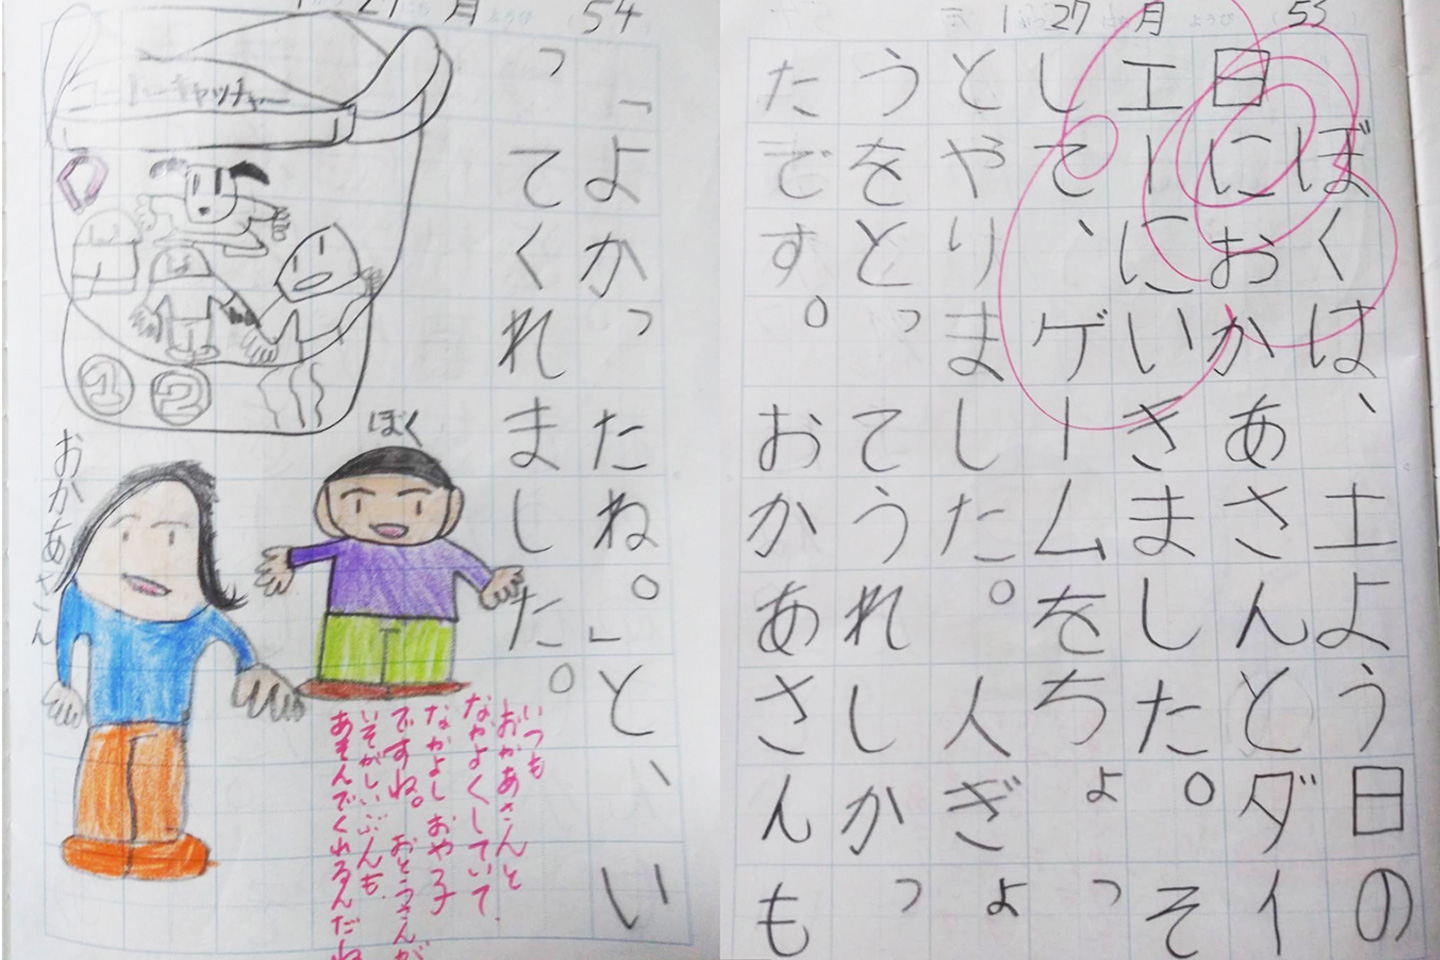 1 27 月 53
ぼくは、土よう日の
日におかあさんとダイ
エーにいきました。そ
して、ゲームをちょっ
とやりました。人ぎょ
うをとってうれしかっ
たです。おかあさんも
1 27 月 54
「よかったね。」と、い
ってくれました。
キャッチャー
1 2
ぼく
おかあさん
いつも
おかあさんと
なかよくしていて、
なかよしおや子
ですね。おとうさんが
いそがしいぶんも
あそんでくれるんだね